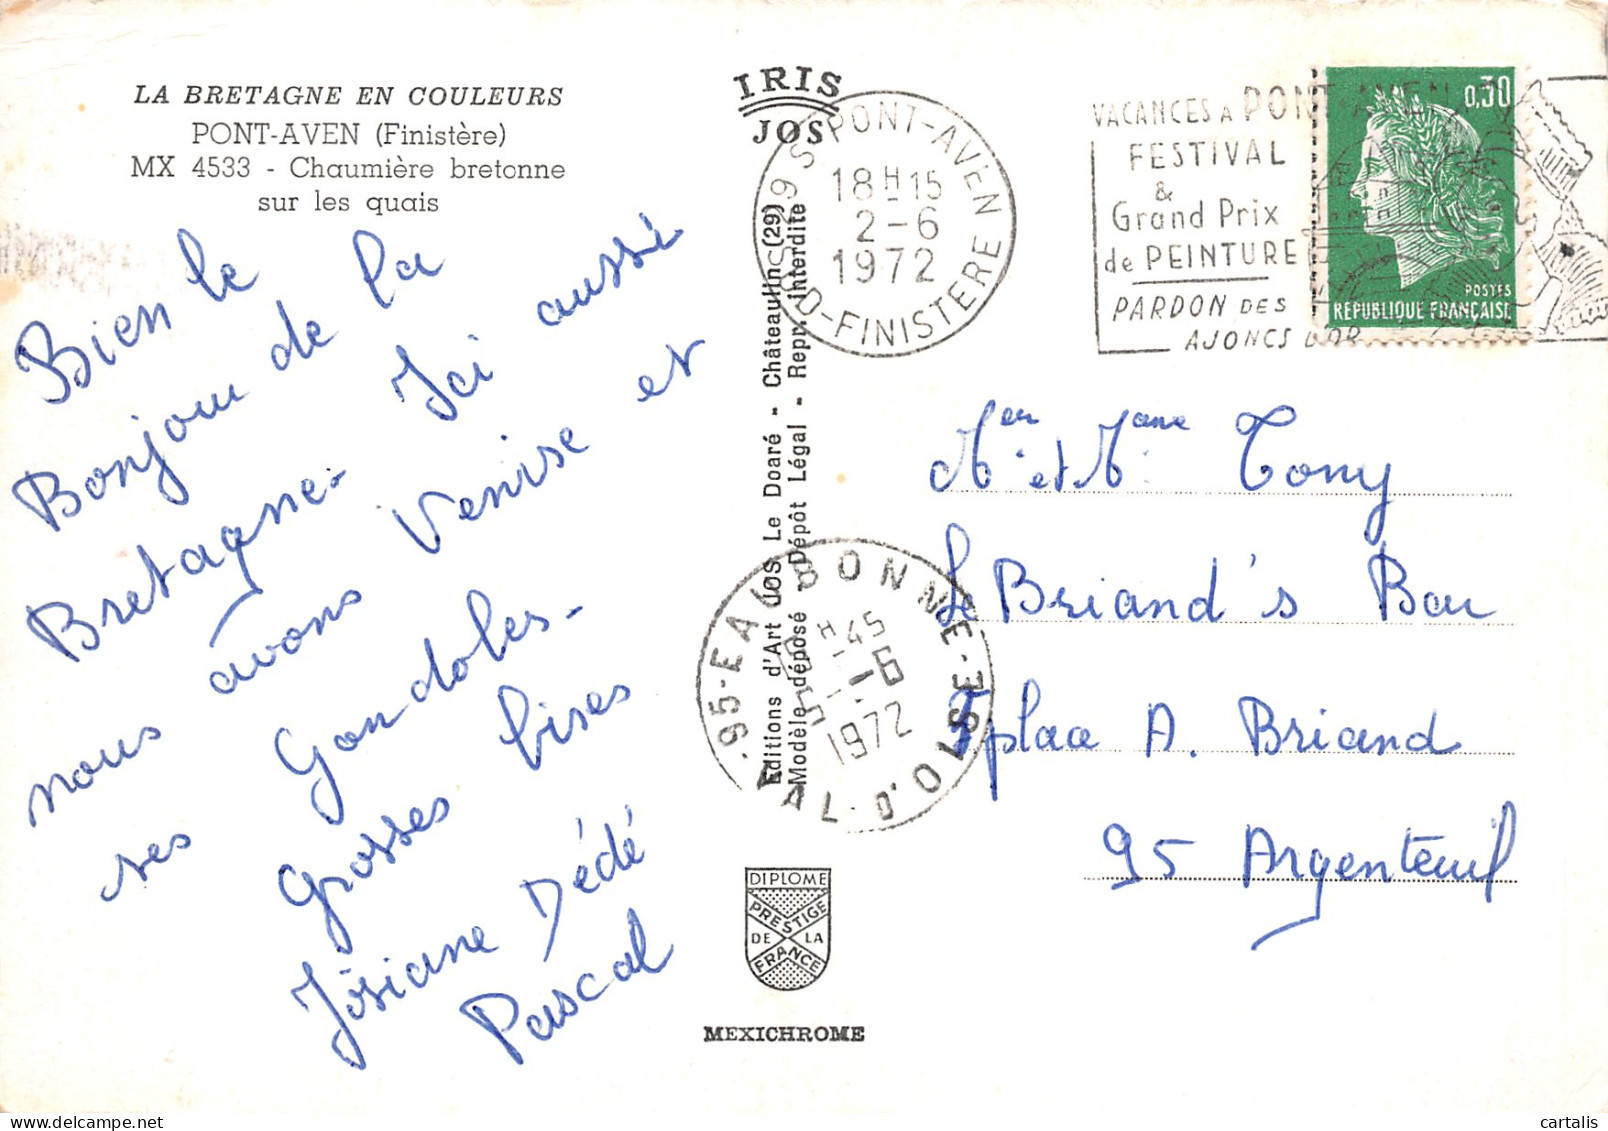 LA BRETAGNE EN COULEURS
PONT-AVEN (Finistère)
MX 4533 - Chaumière bretonne
sur les quais
Bien le
Bonjour de la
Bretagne. Ici aussi
nous avons Venise et
ses Gondoles.
Grosses bises
Josiane Dédé
Pascal
IRIS
JOS
Editions d'Art JOS Le Doaré - Châteaulin (29)
Modèle déposé - Dépôt Légal - Repr. interdite
29 S PONT-AVEN
18H15
2-6
1972
SUD-FINISTERE
VACANCES A PONT-AVEN
FESTIVAL
&
Grand Prix
de PEINTURE
PARDON DES
AJONCS D'OR
0,30
POSTES
REPUBLIQUE FRANÇAISE
Mer et Mme Tony
Le Briand's Bar
place A. Briand
95 Argenteuil
95-EAUBONNE-
H 45
-6
1972
VAL-D'OISE
DIPLOME
PRESTIGE
DE LA
FRANCE
MEXICHROME
cartalis
www.delcampe.net